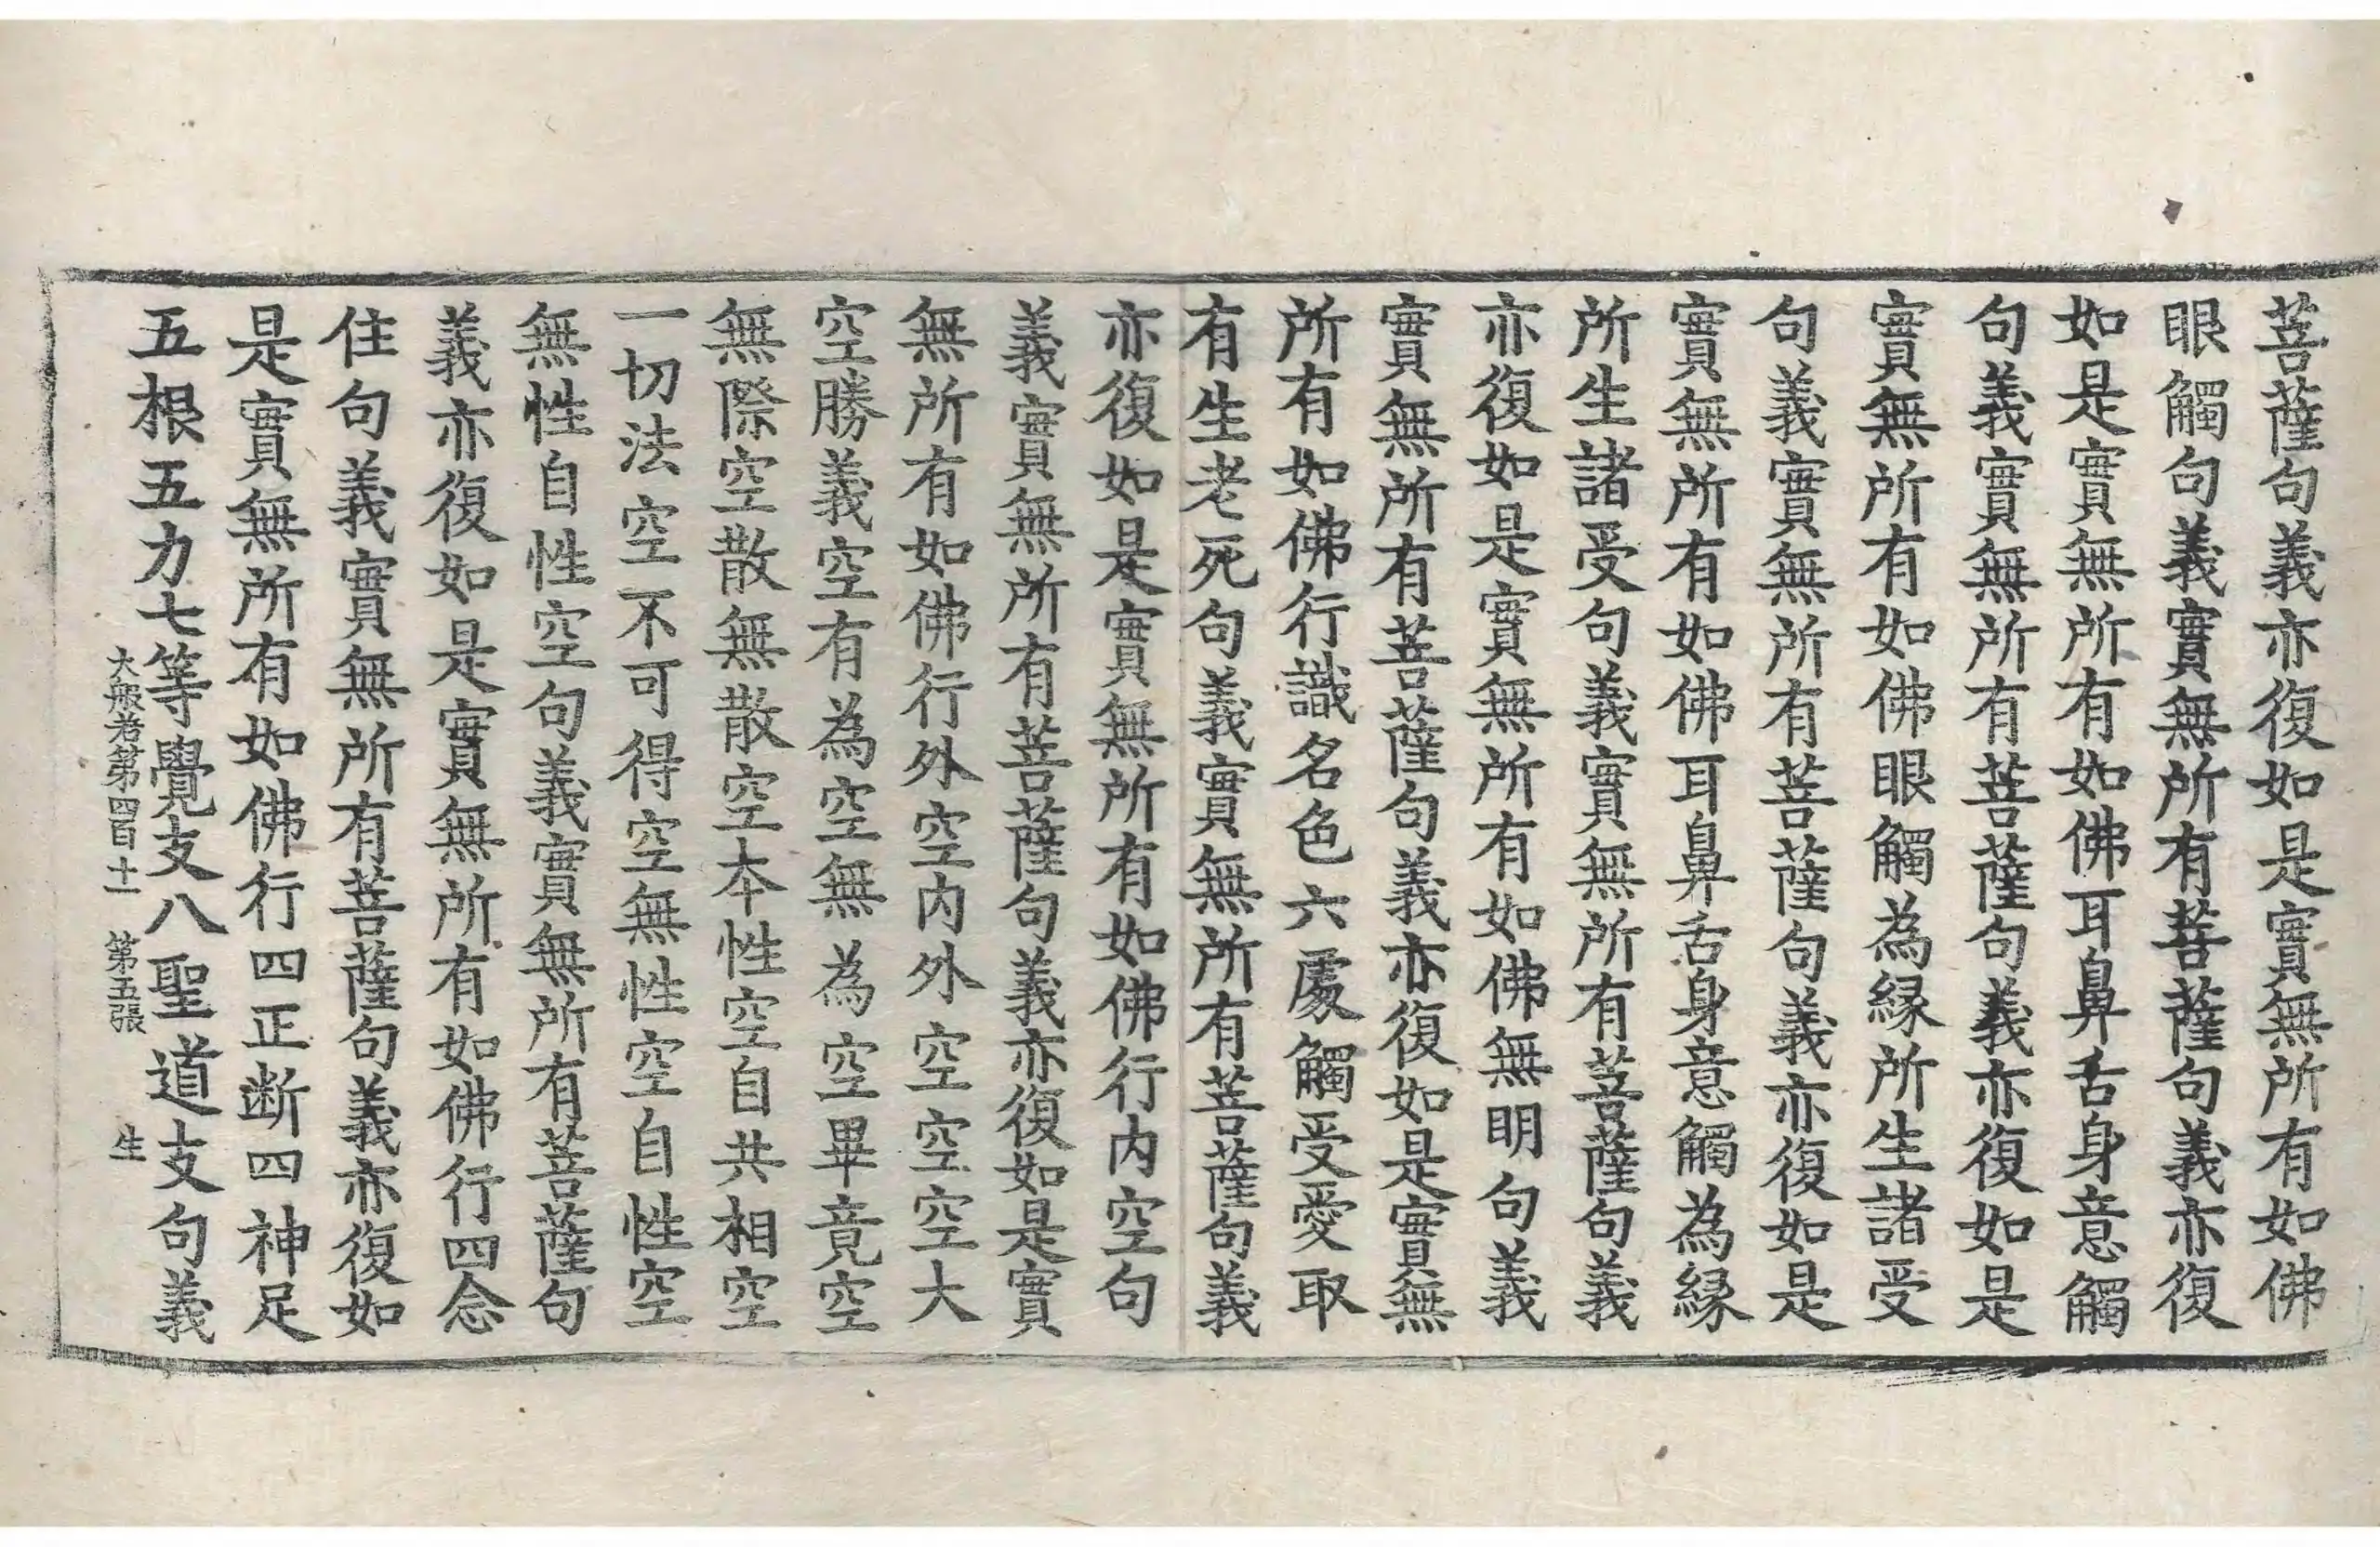 菩薩句義亦復如是實無所有如佛
眼觸句義實無所有菩薩句義亦復
如是實無所有如佛耳鼻舌身意觸
句義實無所有菩薩句義亦復如是
實無所有如佛眼觸為緣所生諸受
句義實無所有菩薩句義亦復如是
實無所有如佛耳鼻舌身意觸為緣
所生諸受句義實無所有菩薩句義
亦復如是實無所有如佛無明句義
實無所有菩薩句義亦復如是實無
所有如佛行識名色六處觸受愛取
有生老死句義實無所有菩薩句義
亦復如是實無所有如佛行内空句
義實無所有菩薩句義亦復如是實
無所有如佛行外空内外空空空大
空勝義空有為空無為空畢竟空
無際空散無散空本性空自共相空
一切法空不可得空無性空自性空
無性自性空句義實無所有菩薩句
義亦復如是實無所有如佛行四念
住句義實無所有菩薩句義亦復如
是實無所有如佛行四正断四神足
五根五力七等覺支八聖道支句義
大般若第四百十一 第五張 生